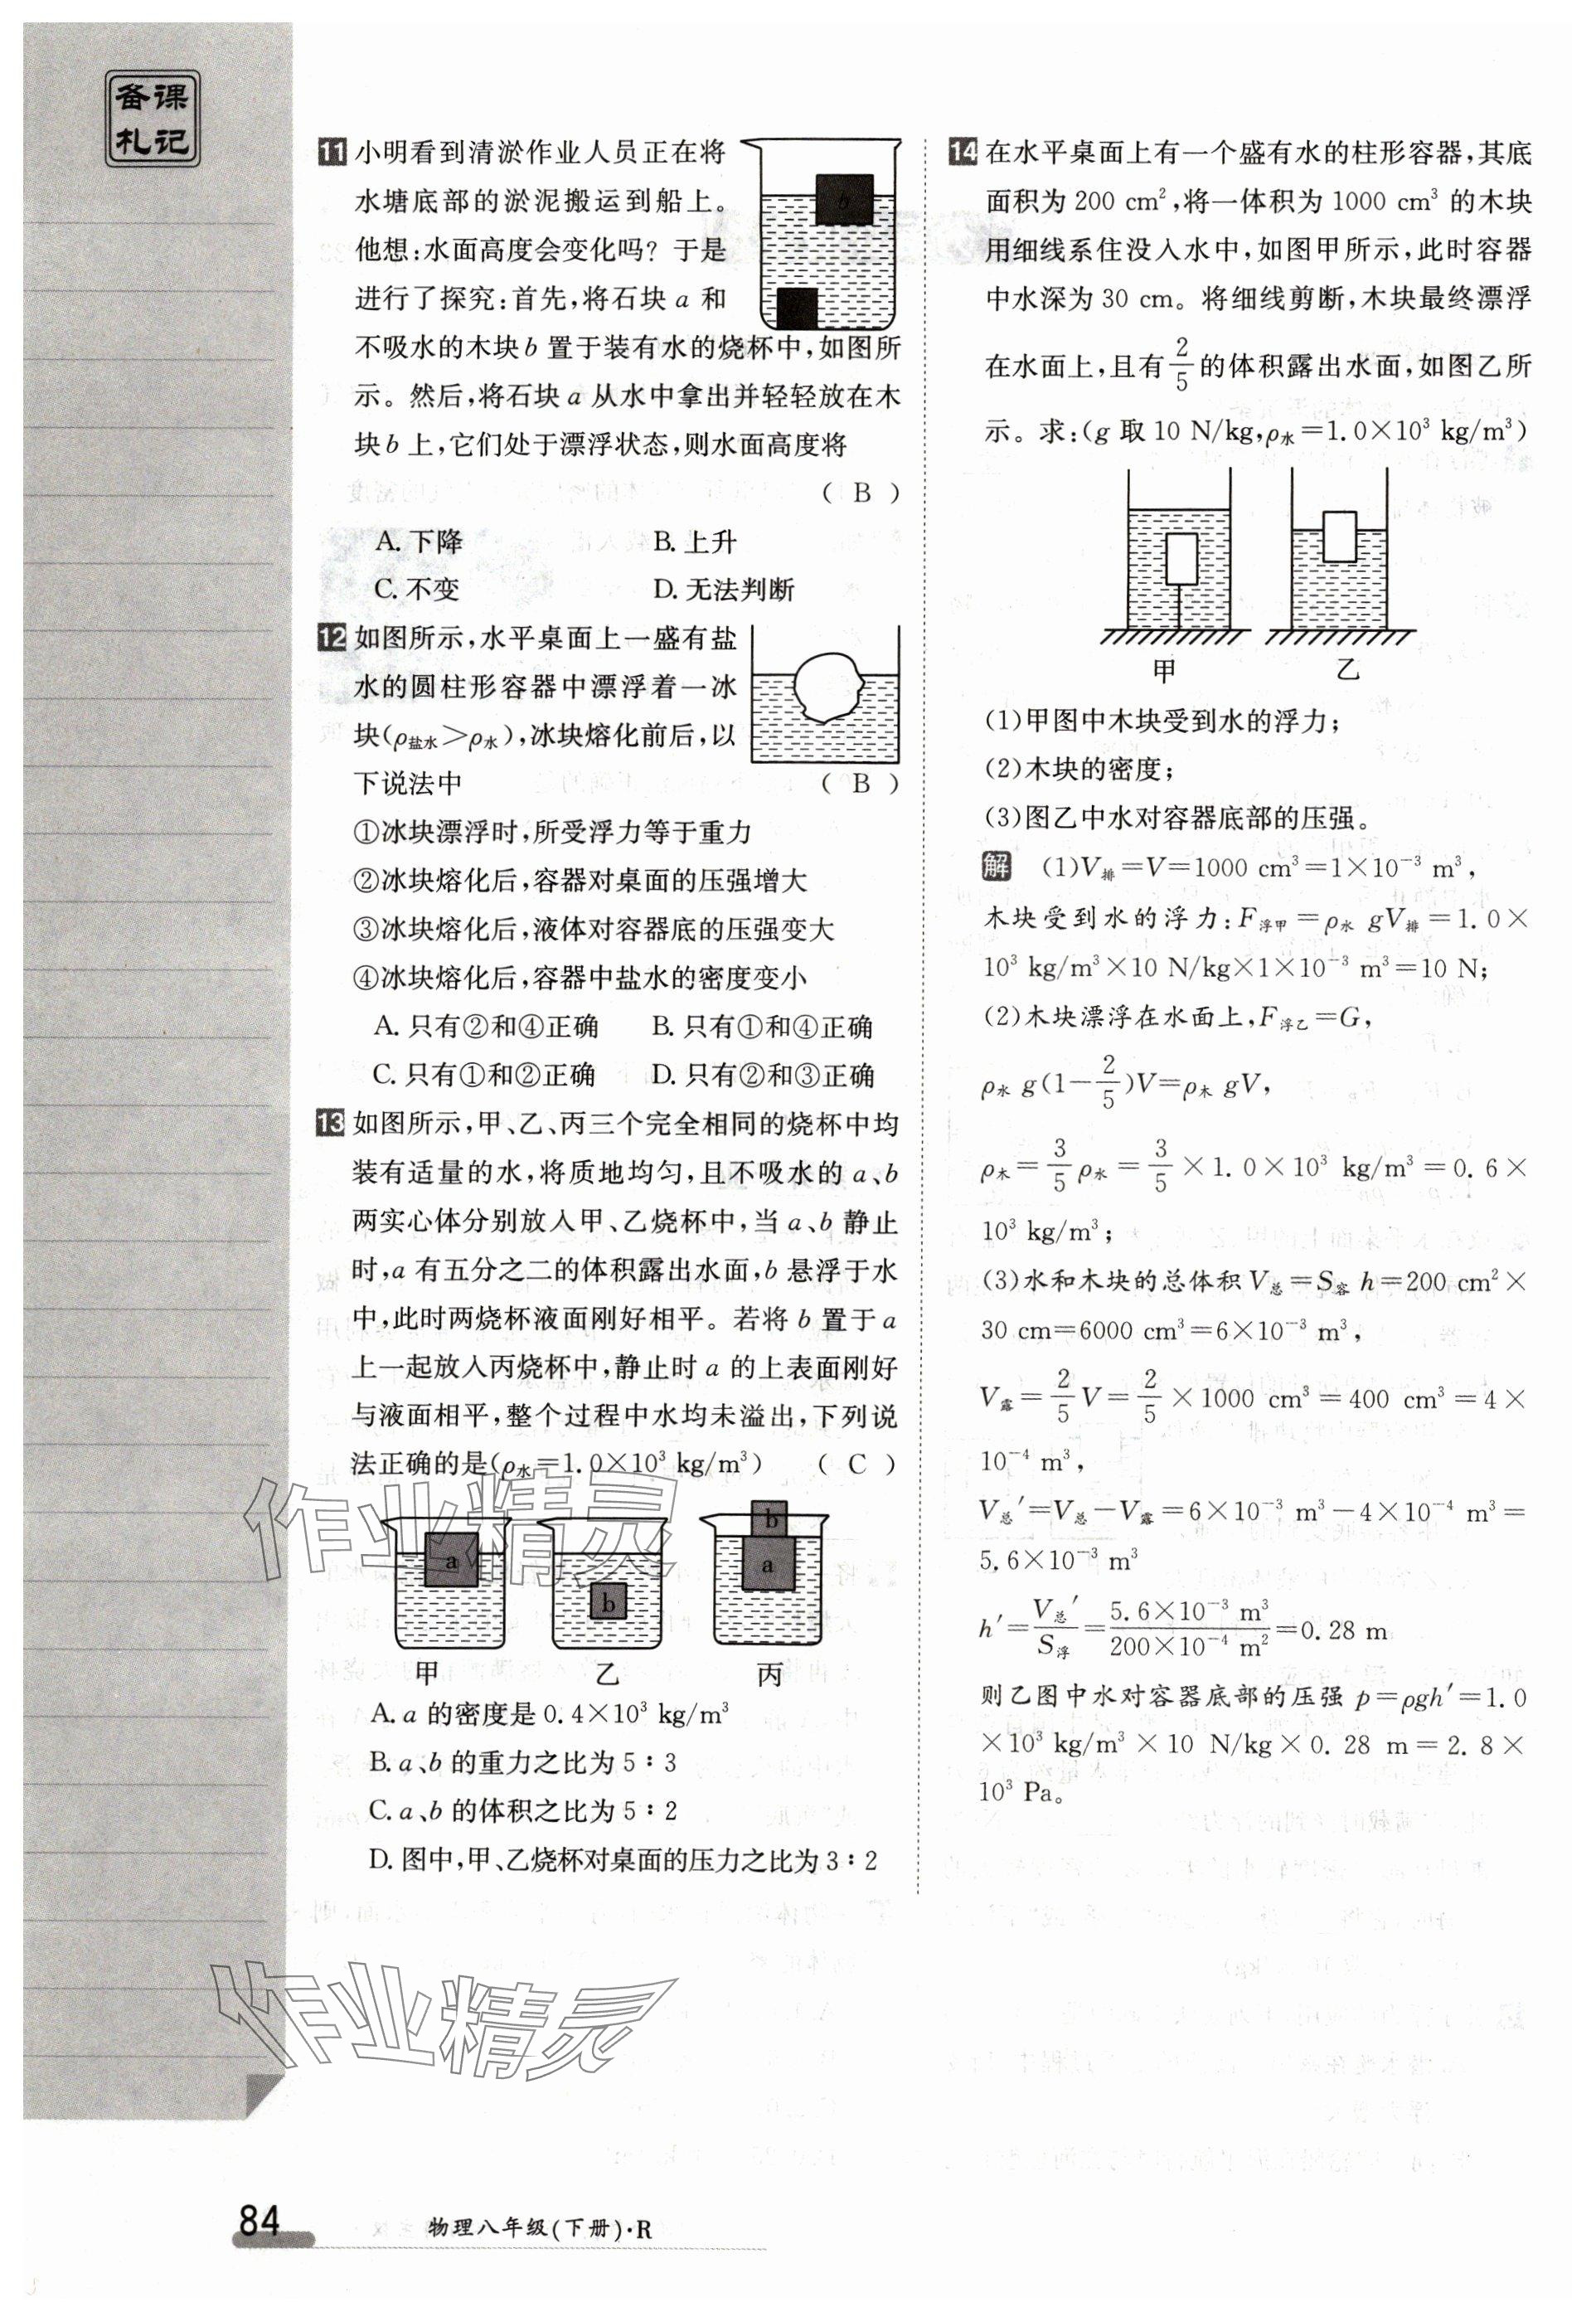 备课
札记
11 小明看到清淤作业人员正在将
水塘底部的淤泥搬运到船上。
他想:水面高度会变化吗？于是
进行了探究:首先,将石块 a 和
不吸水的木块 b 置于装有水的烧杯中,如图所
示。然后,将石块 a 从水中拿出并轻轻放在木
块 b 上,它们处于漂浮状态,则水面高度将
( B )
b
A. 下降 B. 上升
C. 不变 D. 无法判断
12 如图所示,水平桌面上一盛有盐
水的圆柱形容器中漂浮着一冰
块(ρ盐水＞ρ水),冰块熔化前后,以
下说法中 ( B )
①冰块漂浮时,所受浮力等于重力
②冰块熔化后,容器对桌面的压强增大
③冰块熔化后,液体对容器底的压强变大
④冰块熔化后,容器中盐水的密度变小
A. 只有②和④正确 B. 只有①和④正确
C. 只有①和②正确 D. 只有②和③正确
13 如图所示,甲、乙、丙三个完全相同的烧杯中均
装有适量的水,将质地均匀,且不吸水的 a、b
两实心体分别放入甲、乙烧杯中,当 a、b 静止
时,a 有五分之二的体积露出水面,b 悬浮于水
中,此时两烧杯液面刚好相平。若将 b 置于 a
上一起放入丙烧杯中,静止时 a 的上表面刚好
与液面相平,整个过程中水均未溢出,下列说
法正确的是(ρ水=1.0×10³ kg/m³) ( C )
a b b a
甲 乙 丙
A. a 的密度是 0.4×10³ kg/m³
B. a、b 的重力之比为 5∶3
C. a、b 的体积之比为 5∶2
D. 图中,甲、乙烧杯对桌面的压力之比为 3∶2
14 在水平桌面上有一个盛有水的柱形容器,其底
面积为 200 cm²,将一体积为 1000 cm³ 的木块
用细线系住没入水中,如图甲所示,此时容器
中水深为 30 cm。将细线剪断,木块最终漂浮
在水面上,且有 2/5 的体积露出水面,如图乙所
示。求:(g 取 10 N/kg,ρ水=1.0×10³ kg/m³)
甲 乙
(1)甲图中木块受到水的浮力;
(2)木块的密度;
(3)图乙中水对容器底部的压强。
解 (1)V排=V=1000 cm³=1×10⁻³ m³,
木块受到水的浮力:F浮甲=ρ水 gV排=1.0×
10³ kg/m³×10 N/kg×1×10⁻³ m³=10 N;
(2)木块漂浮在水面上,F浮乙=G,
ρ水 g(1-2/5)V=ρ木 gV,
ρ木=3/5 ρ水=3/5×1.0×10³ kg/m³=0.6×
10³ kg/m³;
(3)水和木块的总体积 V总=S容 h=200 cm²×
30 cm=6000 cm³=6×10⁻³ m³,
V露=2/5 V=2/5×1000 cm³=400 cm³=4×
10⁻⁴ m³,
V总′=V总-V露=6×10⁻³ m³-4×10⁻⁴ m³=
5.6×10⁻³ m³
h′=V总′/S浮=5.6×10⁻³ m³/200×10⁻⁴ m²=0.28 m
则乙图中水对容器底部的压强 p=ρgh′=1.0
×10³ kg/m³×10 N/kg×0.28 m=2.8×
10³ Pa。
作业精灵
作业精灵
84 物理八年级(下册)·R